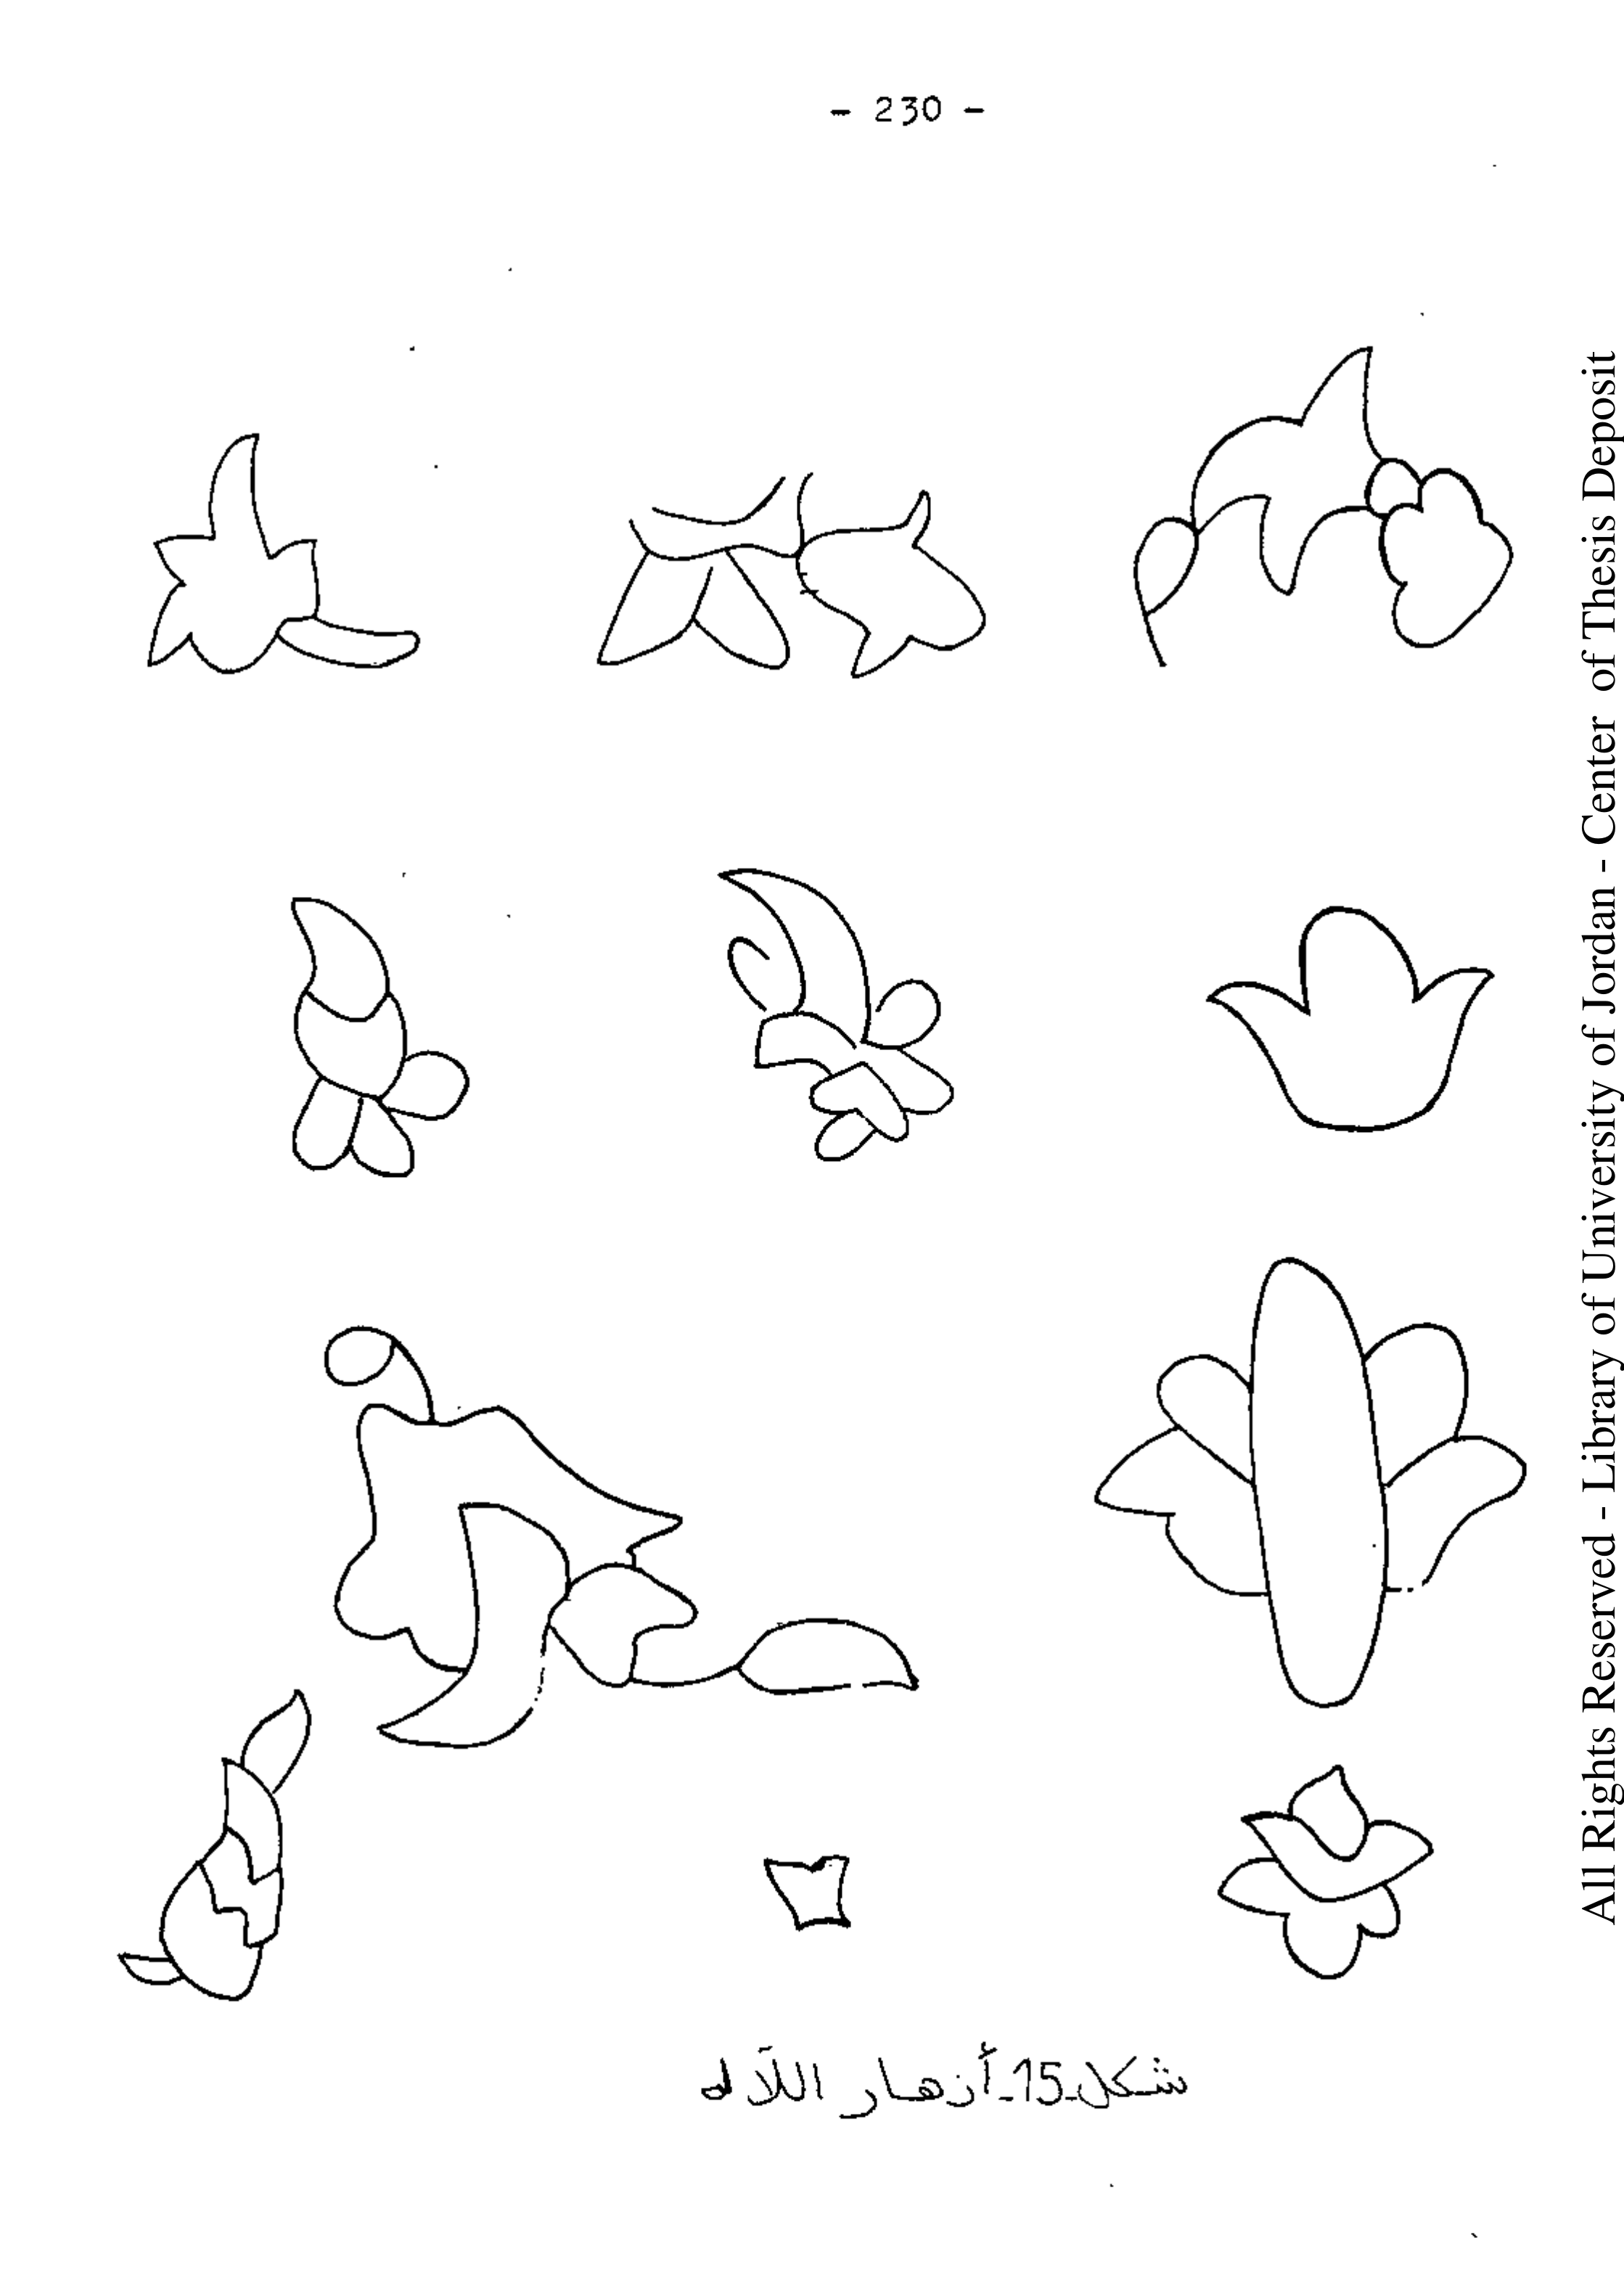 - 230 -
شكل-15-أزهار اللآله
All Rights Reserved - Library of University of Jordan - Center of Thesis Deposit